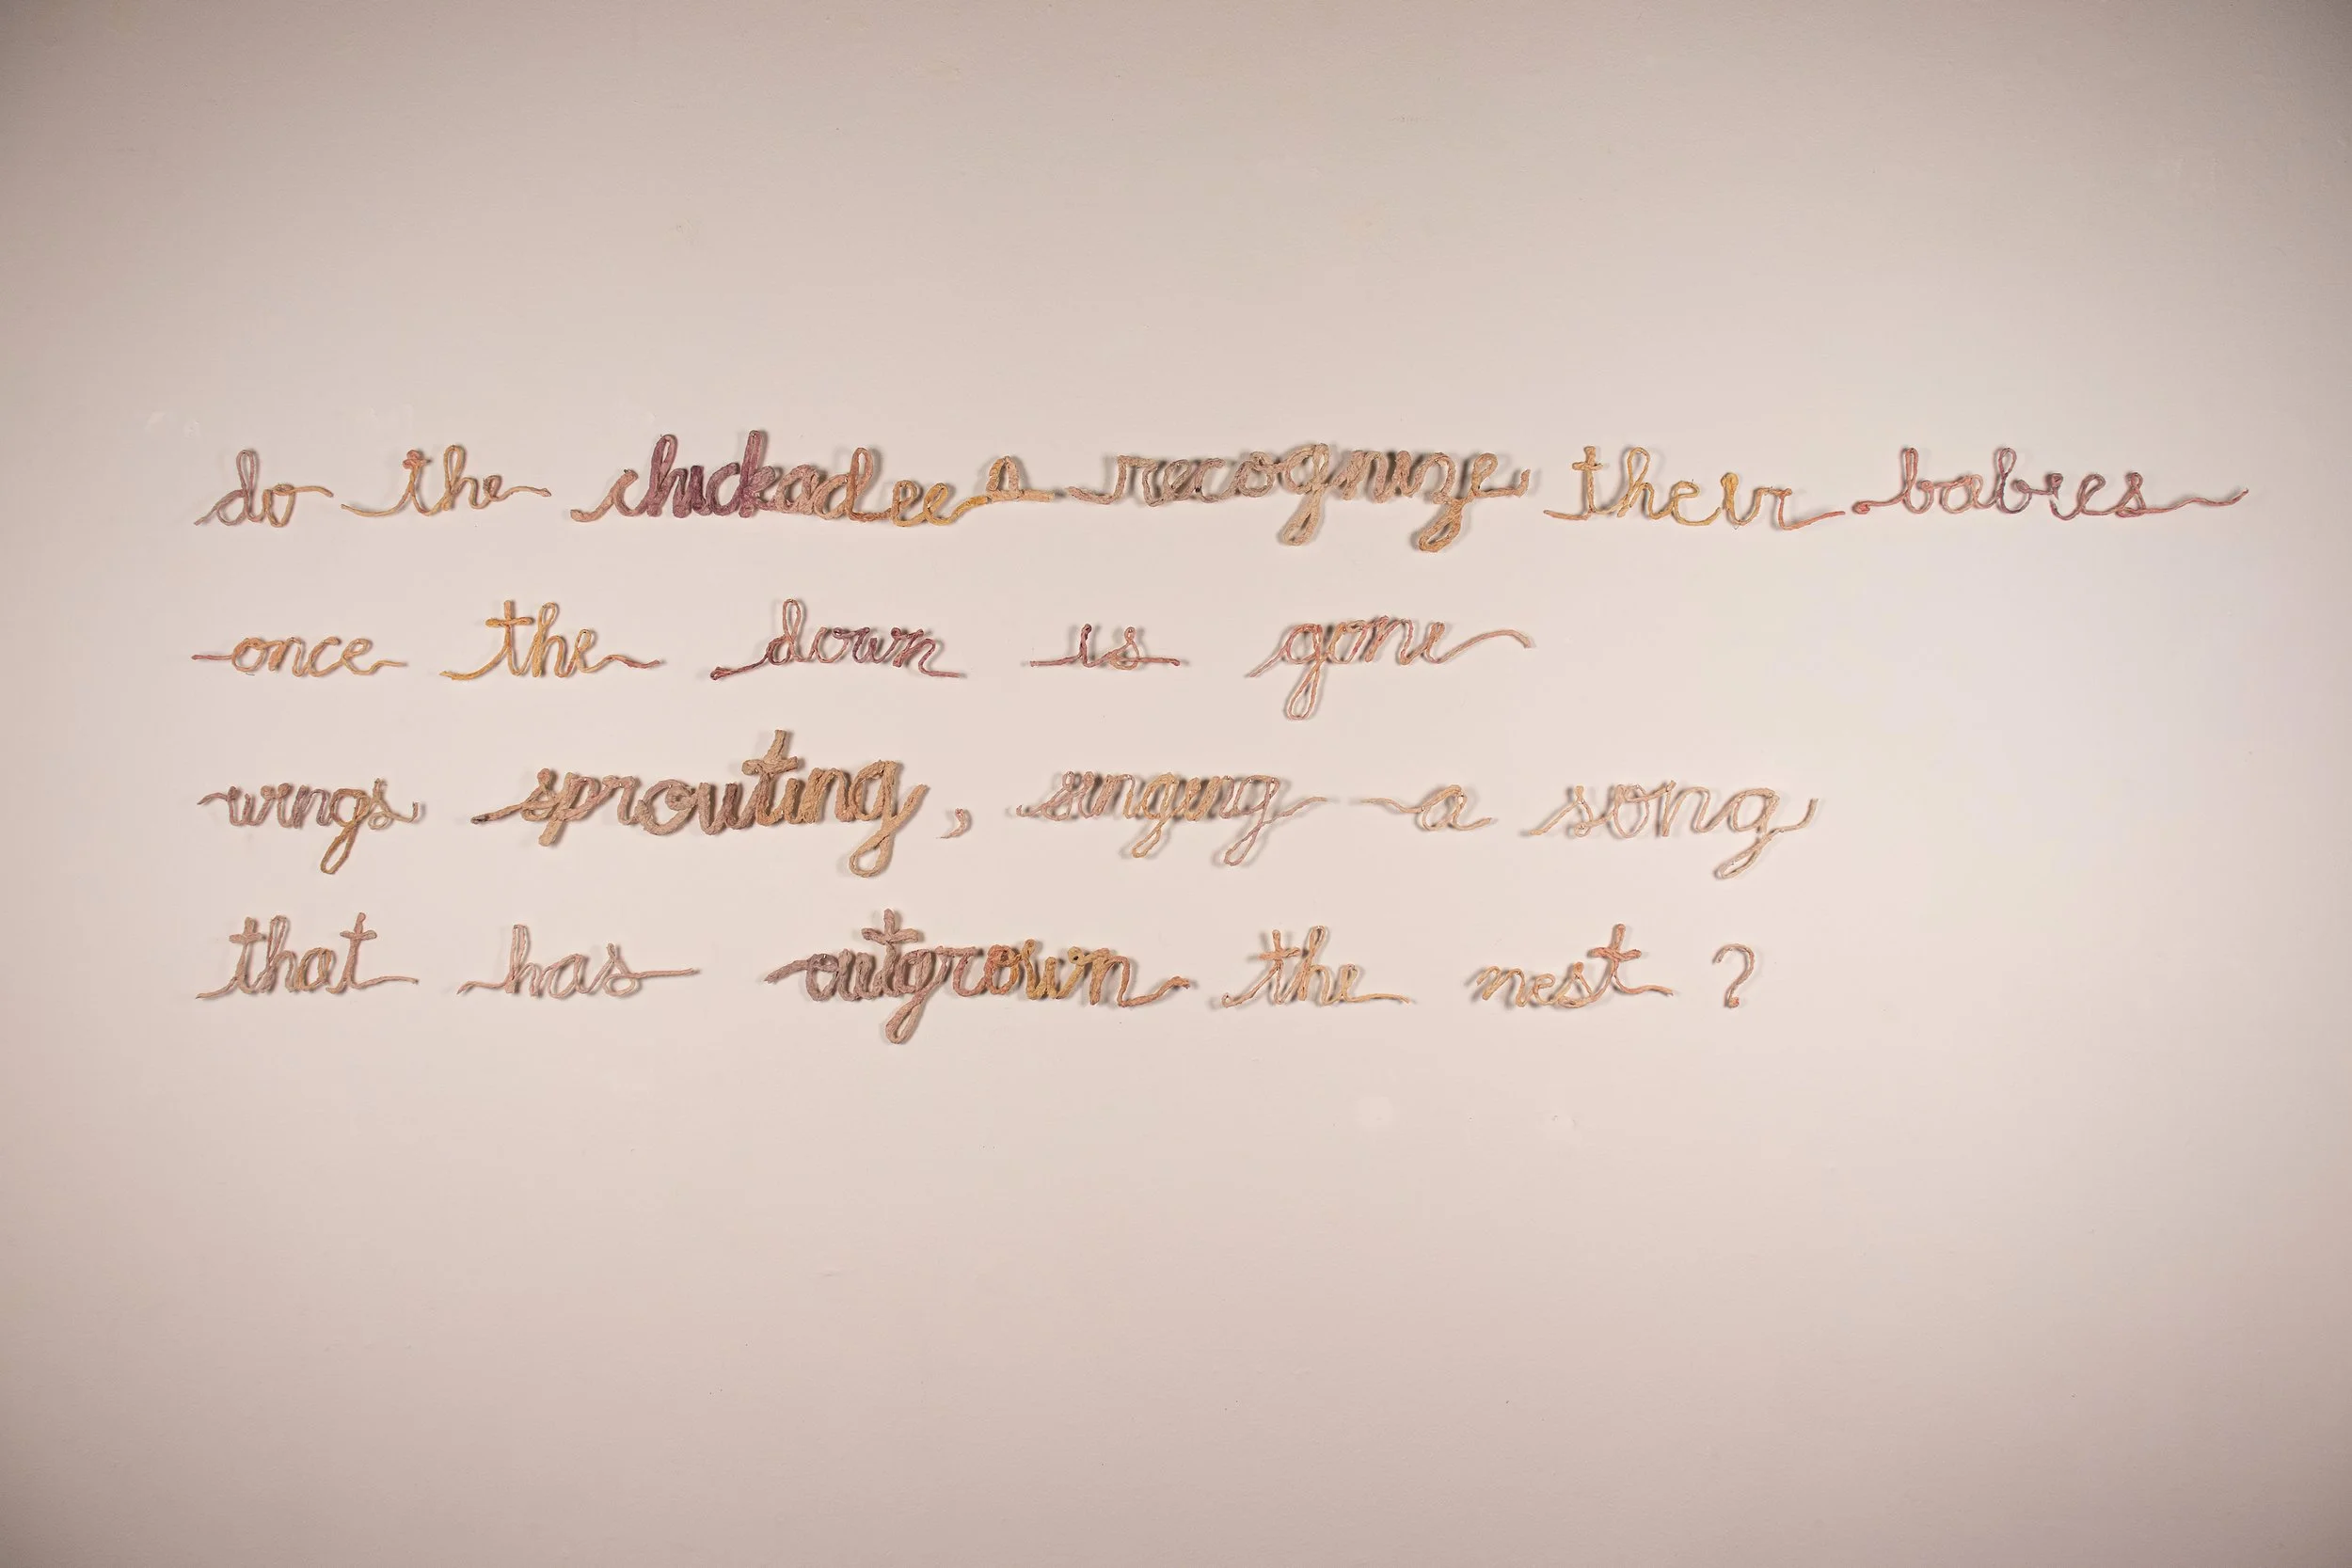 do the chickadees recognize their babies
once the down is gone
wings sprouting, singing a song
that has outgrown the nest?